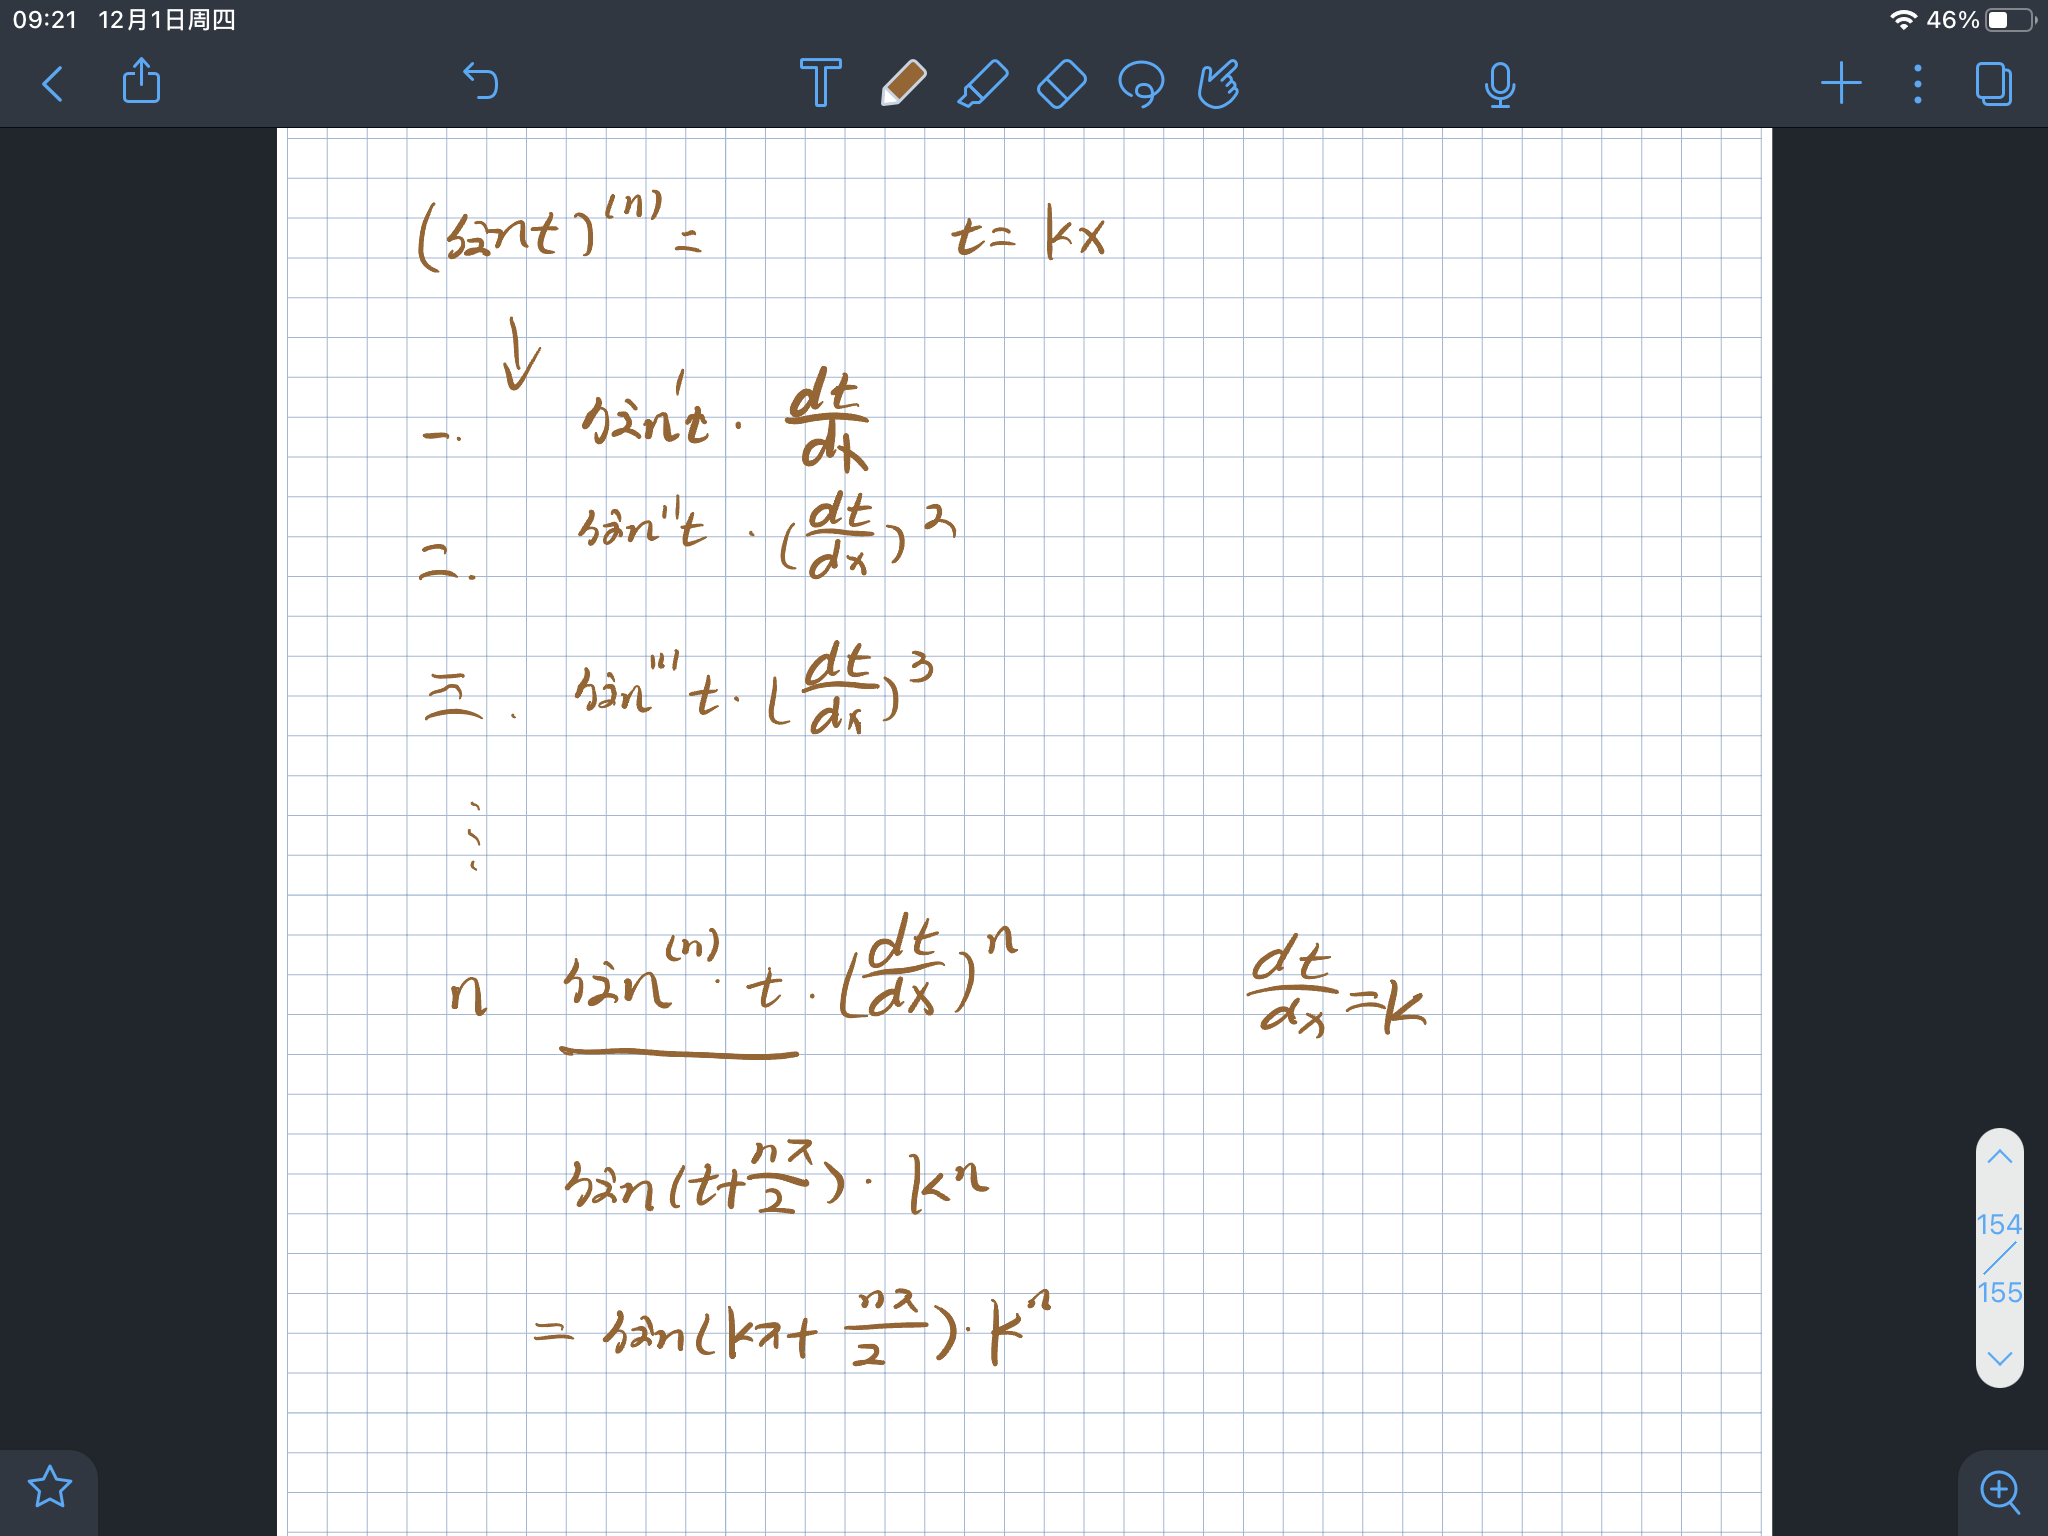 09:21 12月1日周四 46%
(sint)^(n) = t = kx
一. sin't · dt/dx
二. sin''t · (dt/dx)^2
三. sin'''t · (dt/dx)^3
⋮
n sin^(n) · t · (dt/dx)^n dt/dx = k
sin(t+nπ/2) · k^n
= sin(kπ+nπ/2) · k^n
154/155